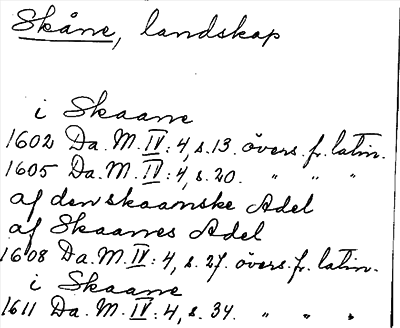 Skåne, landskap
i Skaane
1602 Da. M. IV: 4, s. 13. övers. fr. latin.
1605 Da. M. IV: 4, s. 20. " " "
af den skaanske Adel
af Skaanes Adel
1608 Da. M. IV: 4, s. 27. övers. fr. latin.
i Skaane
1611 Da. M. IV: 4, s. 34. " " "